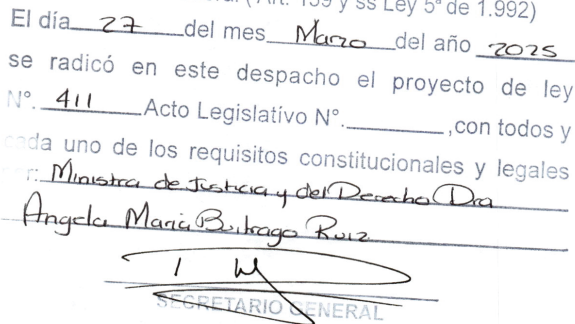 (Art. 139 y ss Ley 5ª de 1.992)
El día 27 del mes Marzo del año 2025
se radicó en este despacho el proyecto de ley
N°. 411 Acto Legislativo N°. ,con todos y
cada uno de los requisitos constitucionales y legales
r: Ministra de Justicia y del Derecho Dra
Angela Maria Buitrago Ruiz
SECRETARIO GENERAL